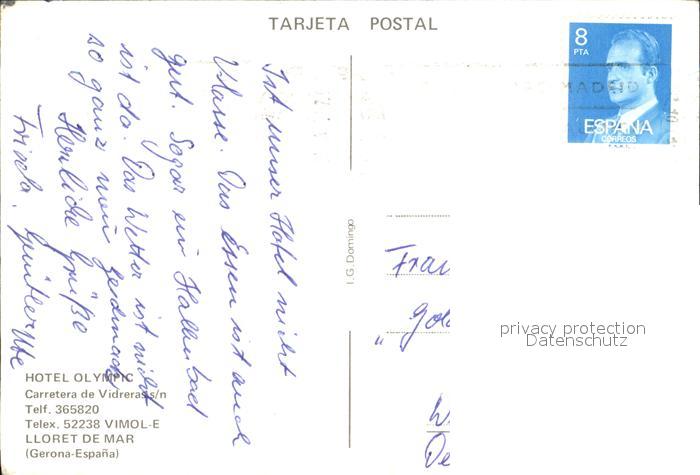 TARJETA POSTAL
8
PTA
MADRID
ESPAÑA
CORREOS
Ist unser Hotel nicht
Klasse. Das Essen ist auch
gut. Sogar ein Hallenbad
ist da. Das Wetter ist nicht
so ganz
Herzliche Grüße
Frieda, Günter Ute
I.G. Domingo
Frau
Gol
W
De
privacy protection
Datenschutz
HOTEL OLYMPIC
Carretera de Vidreras s/n
Telf. 365820
Telex. 52238 VIMOL-E
LLORET DE MAR
(Gerona-España)